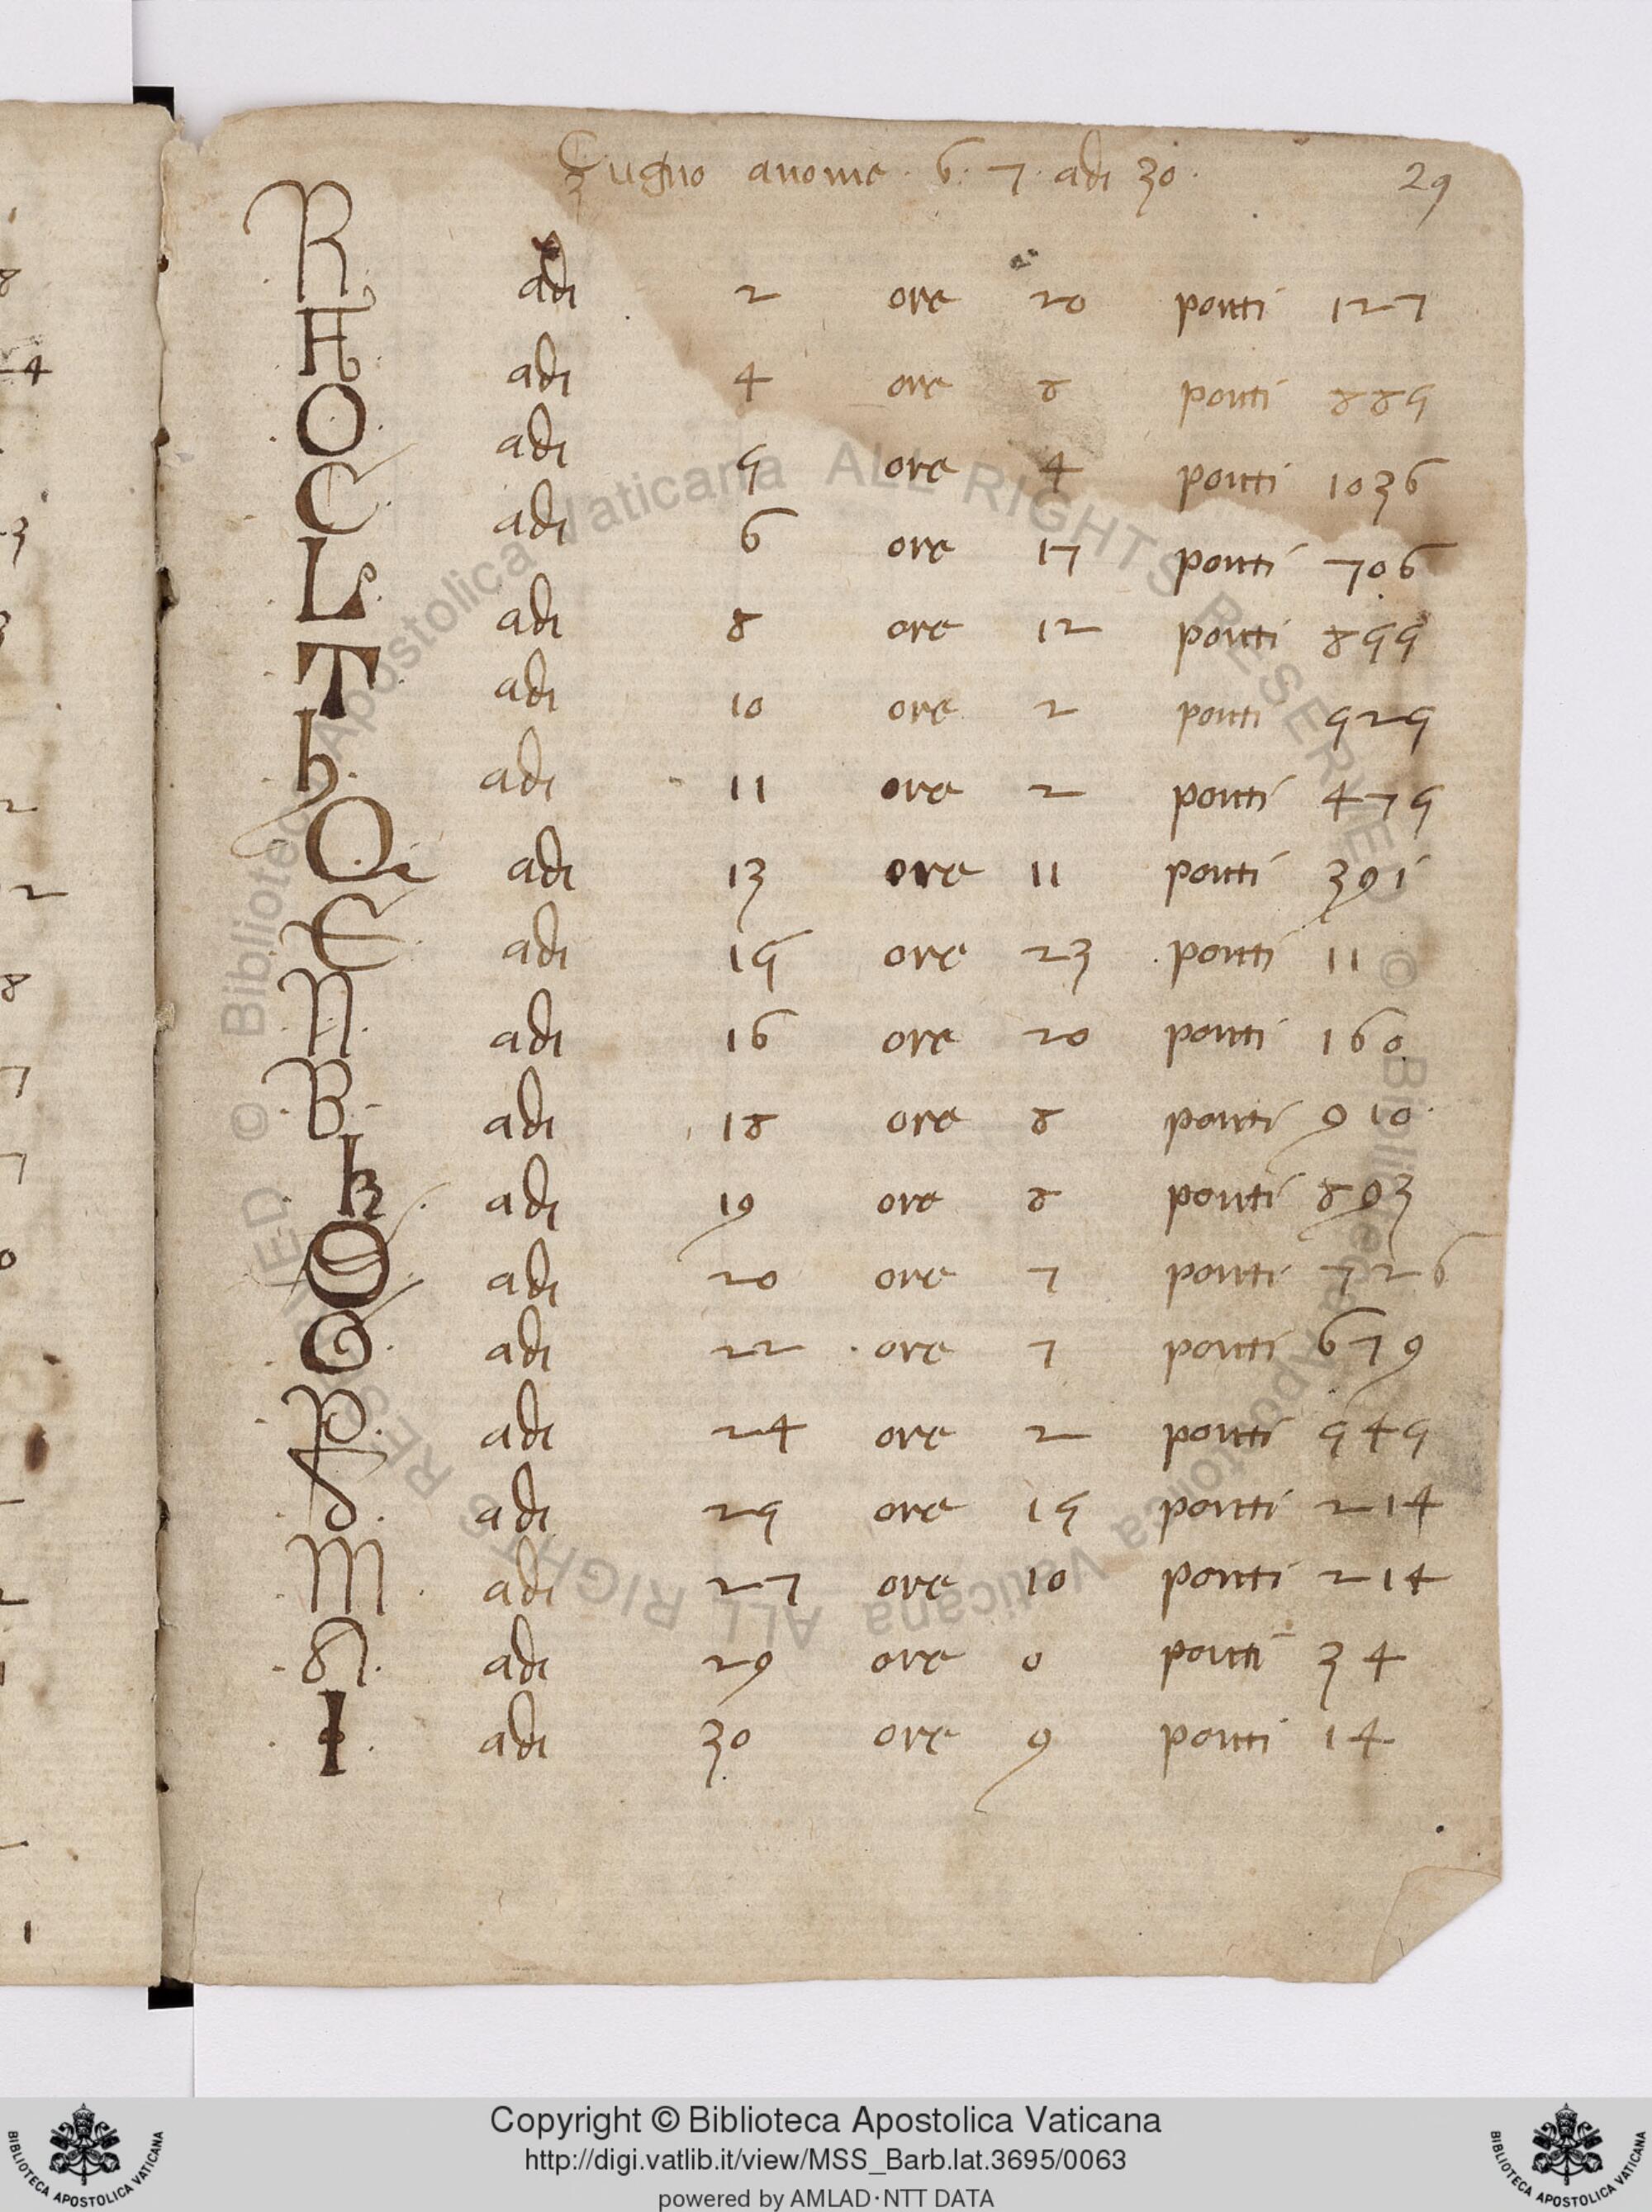 Zugno anome · 6 · 7 · adi 30 · 29
R adi 2 ore 20 ponti 127
F adi 4 ore 8 ponti 885
O adi 5 ore 4 ponti 1036
C adi 6 ore 17 ponti 706
L adi 8 ore 12 ponti 855
T adi 10 ore 2 ponti 525
h adi 11 ore 2 ponti 475
Q adi 13 ore 11 ponti 391
E adi 15 ore 23 ponti 11
N adi 16 ore 20 ponti 160
B adi 18 ore 8 ponti 910
k adi 19 ore 8 ponti 893
S adi 20 ore 7 ponti 726
G adi 22 ore 7 ponti 679
P adi 24 ore 2 ponti 545
D adi 25 ore 15 ponti 214
M adi 27 ore 10 ponti 214
A adi 29 ore 0 ponti 34
I adi 30 ore 9 ponti 14
© Biblioteca Apostolica Vaticana ALL RIGHTS RESERVED © Biblioteca Apostolica Vaticana ALL RIGHTS RESERVED
Copyright © Biblioteca Apostolica Vaticana
http://digi.vatlib.it/view/MSS_Barb.lat.3695/0063
powered by AMLAD·NTT DATA
BIBLIOTECA APOSTOLICA VATICANA
BIBLIOTECA APOSTOLICA VATICANA